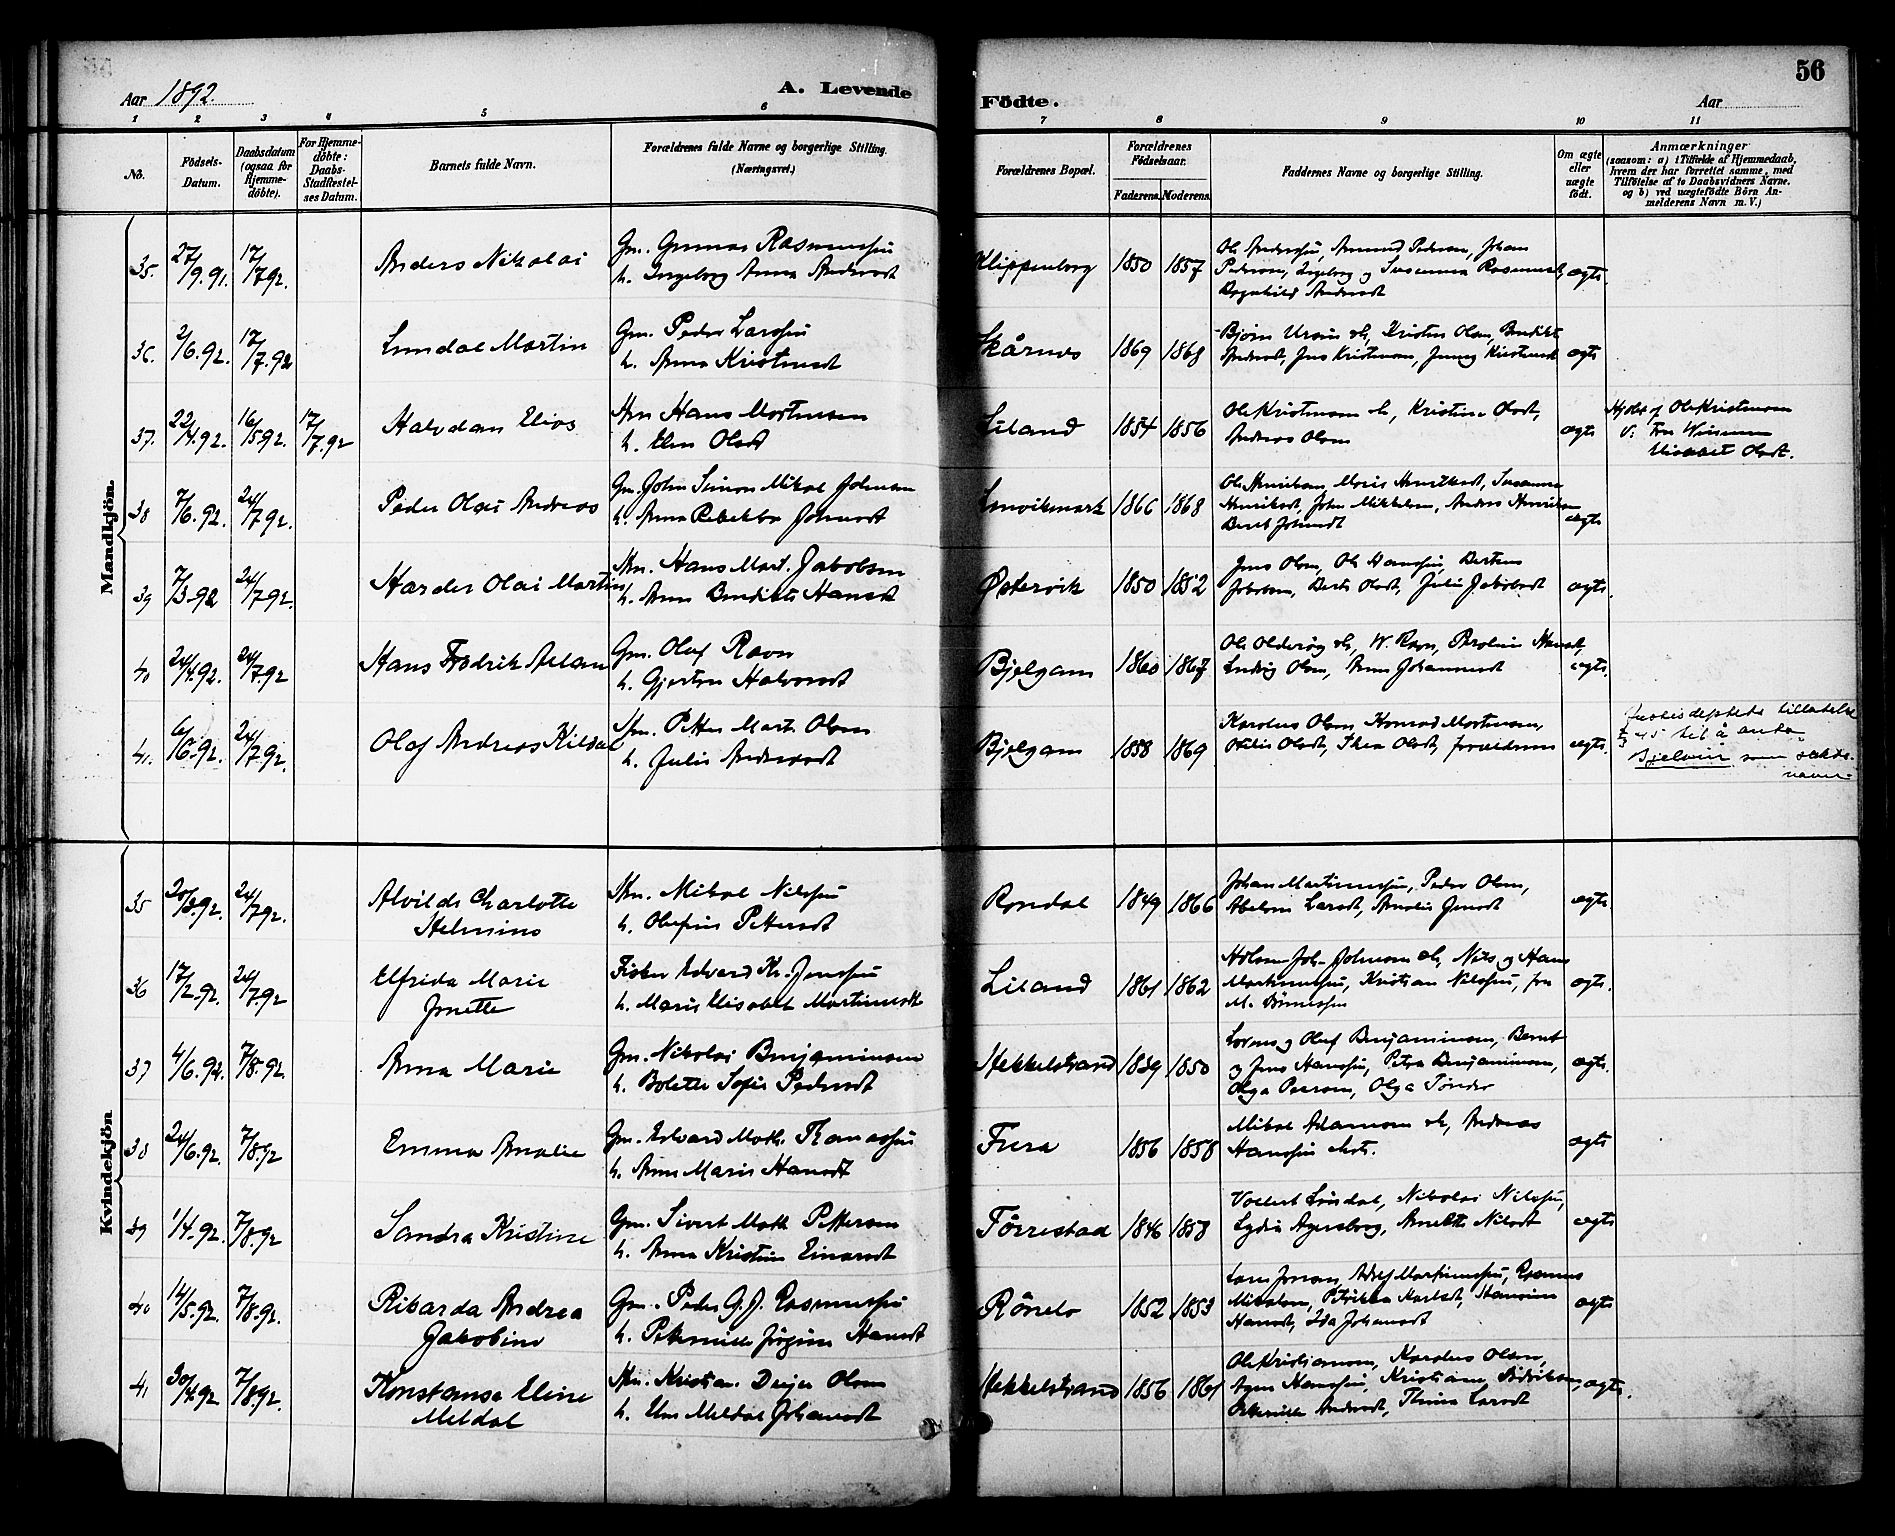 Aar 1892.
A. Levende
Födte.
Aar
56
1 2 3 4 5 6 7 8 9 10 11
No.
Födsels-Datum.
Daabsdatum (ogsaa for Hjemme-döbte).
For Hjemme-döbte: Daabs-Stadfæstel-ses Datum.
Barnets fulde Navn.
Forældrenes fulde Navne og borgerlige Stilling. (Næringsvei.)
Forældrenes Bopæl.
Forældrenes Födselsaar.
Faderens. Moderens.
Faddernes Navne og borgerlige Stilling.
Om ægte eller uægte födt.
Anmærkninger
(saasom: a) i Tilfælde af Hjemmedaab, hvem der har forrettet samme, med Tilföielse af to Daabsvidners Navne. og b) ved uægtefödte Börn An-melderens Navn m. V.)
Mandkjön.
35. 27/9.91. 17/7.92. Anders Nikolai
Gm. Gunnar Rasmussen
h. Ingeborg Anna Andersdt
Klippenborg 1850 1857
Ole Anderssen, Amund Pedersen, Johan
Pedersen, Ingeborg og Susanna Rasmusdt,
Ragnhild Andersdt
ægte.
36. 2/6.92. 17/7.92 Lundal Martin
Gm. Peder Larssen
h. Anna Kristensdt
Skånes 1869 1868
Bjørn Ursin Kristen Olsen, Benedikte
Jens Kristensen, Jenny Kristensdt
ægte
37. 22/4.92. 16/5.92. 17/7.92 Halvdan Elias
Hans Mortensen
h. Elen Olsdt
Liland 1854 1856
Ole Kristensen Kristine Olsdt,
Andreas Olsen
ægte
Hjdøbt af Ole Kristensen
V: Fru
Olsdt.
38 7/6.92. 24/7.92. Peder Olai Andreas
Gm. John Simon Mikal Johnsen
h. Anna Rebekka Johnsdt
Lenvikmark 1866 1868
Ole Henriksen, Maris Henriksdt, Susanna
Henriksdt, John Mikkelsen, Anders Henriksen
Berit Johnsdt
ægte
39 7/3.92 24/7.92. Harder Olai Martin
Hans Mart. Jakobsen
h. Anna Benedikte Hansdt
Østervik 1850 1852
Jens Olsen, Ole Hanssen,
Jakobsen, Olsdt, Julie Jakobsdt
ægte.
40 24/4.92. 24/7.92 Hans Fredrik Adam
Gm. Olaf Ravn
h. Gjertru Halvorsdt
Bjelgam 1860 1867
Ole W. Ravn, Hansdt,
Ludvig Olsen, Anna Johannesdt
ægte.
41. 6/6.92. 24/7.92. Olaf Andreas Kildal
Petter Mart. Olsen
h. Julie Andersdt
Bjelgam 1858 1869
Karolus Olsen, Konrad Mortensen,
Otilie Olsdt, Thea Olsdt, forældrene
ægte.
Justisdeptets tillatelse
45 til å anta
Bjelvin som slekts-
navn.
Kvindekjön
35 20/3.92. 24/7.92. Alvilde Charlotte
Helmine
Mikal Nilssen
h. Olufine Pettersdt
Rondal 1849 1866
Johan Martinussen, Peder Olsen,
Abelone Larsdt, Amalie Jensdt
ægte
36 17/2.92. 24/7.92 Elfrida Marie
Jonette
Fisker Edvard Kr. Jenssen
h. Maria Elisabet Martinusdt
Liland 1861 1862
Johnsen Nils og Hans
Martinussen, Kristian Nilssen, fru
M.
ægte.
37 4/6.92. 7/8.92 Anna Marie
Gm. Nikolai Benjaminsen
h. Bolette Sofie Pedersdt
Hekkelstrand 1839 1850
Lorens og Oluf Benjaminsen, Bernt
og Jens Hanssen, Petra Benjaminsen,
Olga Olga Tønder
ægte.
38 24/6.92. 7/8.92 Emma Amalie
Gm. Edvard Math. Thomassen
h. Anna Marie Hansdt
Fura 1856 1858
Mikal Adamsen Andreas
Hanssen
ægte
39 1/4.92. 7/8.92 Sandra Kristine
Gm. Sivert Math. Pettersen
h. Anna Kristine Einarsdt
Tårrestad 1846 1858
Volbert Nikolai Nilssen,
Lydia Agersborg, Anette Nilsdt
ægte
40 14/5.92. 7/8.92. Rikarda Andrea
Jakobine
Gm. Peder G. J. Rasmussen
h. Petternille Jørgine Hansdt
1852 1853
Lars Jonsen, Adolf Martinussen, Rasmus
Mikalsen, Petrikka
Hansdt, Ida Johansdt
ægte
41 30/4.92 7/8.92. Konstanse Eline
Meldal
Kristian Olsen
h. Meldal Johansdt
Hekkelstrand 1856 1861
Ole Kristiansen, Karolus Olsen,
Hanssen, Kristiane Didriksen,
Petternille Andersdt, Larsdt
ægte.